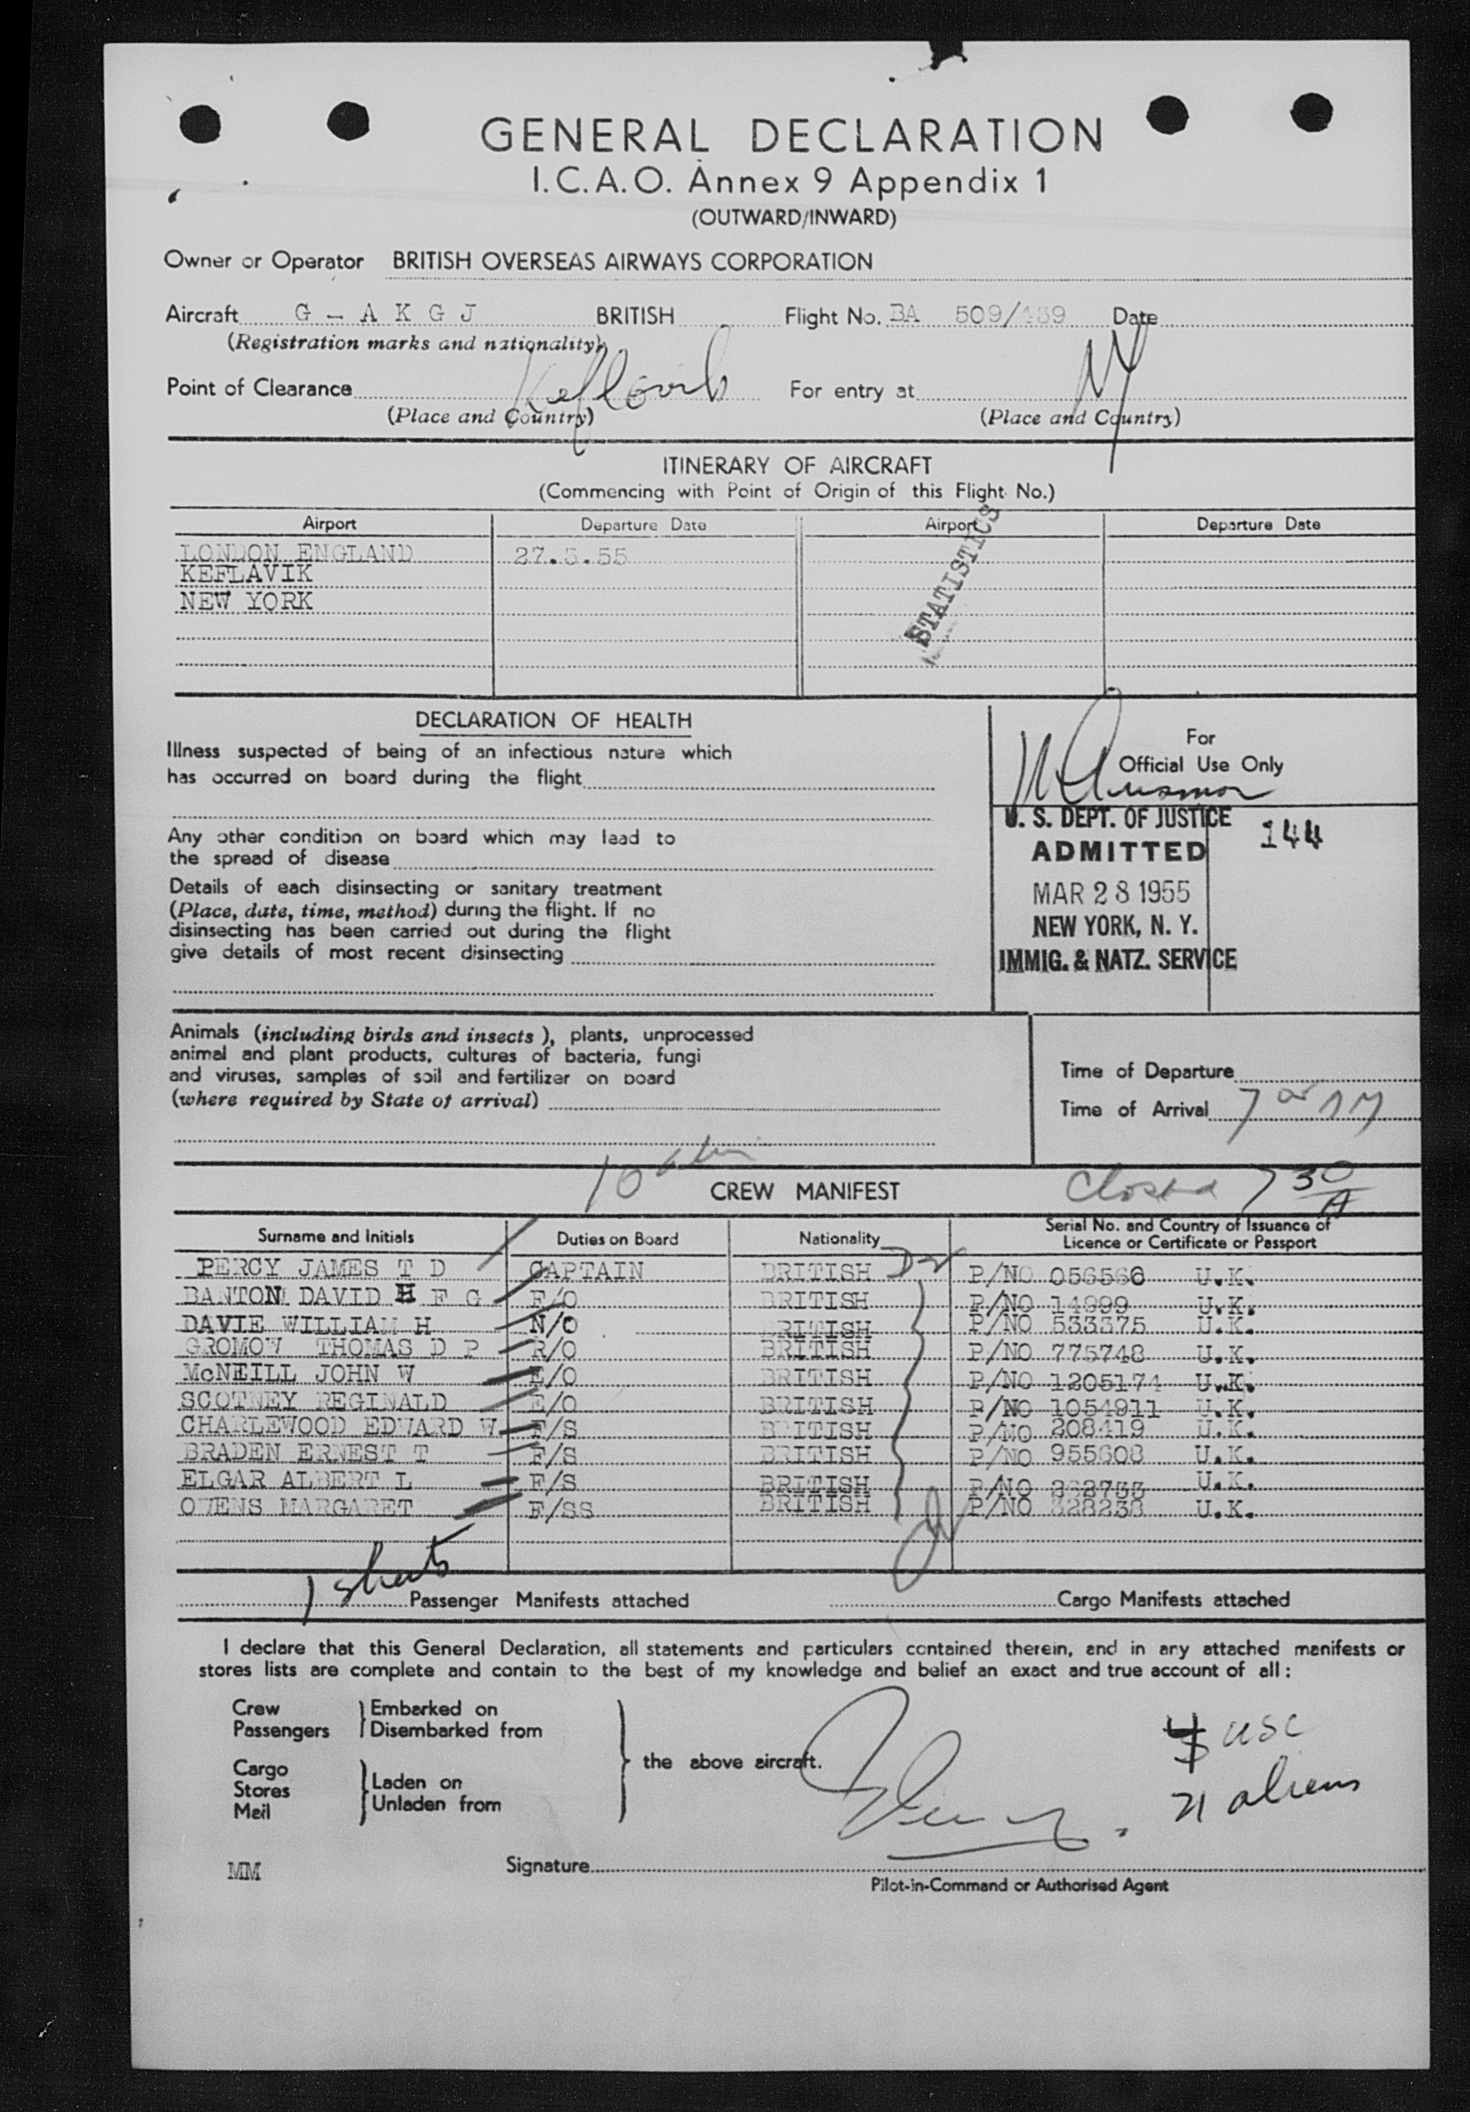 GENERAL DECLARATION
I.C.A.O. Annex 9 Appendix 1
(OUTWARD/INWARD)
Owner or Operator BRITISH OVERSEAS AIRWAYS CORPORATION
Aircraft G - A K G J BRITISH Flight No. BA 509/ Date
(Registration marks and nationality)
Point of Clearance Keflavik For entry at NY
(Place and Country) (Place and Country)
ITINERARY OF AIRCRAFT
(Commencing with Point of Origin of this Flight No.)
Airport Departure Date Airport Departure Date
LONDON ENGLAND 27.3.55
KEFLAVIK
NEW YORK
STATISTICS
DECLARATION OF HEALTH
Illness suspected of being of an infectious nature which
has occurred on board during the flight
Any other condition on board which may lead to
the spread of disease
Details of each disinsecting or sanitary treatment
(Place, date, time, method) during the flight. If no
disinsecting has been carried out during the flight
give details of most recent disinsecting
For
Official Use Only
U. S. DEPT. OF JUSTICE 144
ADMITTED
MAR 28 1955
NEW YORK, N. Y.
IMMIG. & NATZ. SERVICE
Animals (including birds and insects), plants, unprocessed
animal and plant products, cultures of bacteria, fungi
and viruses, samples of soil and fertilizer on board
(where required by State of arrival)
Time of Departure
Time of Arrival 7 AM
10
CREW MANIFEST
Closed 7 30/A
Surname and Initials Duties on Board Nationality Serial No. and Country of Issuance of
Licence or Certificate or Passport
PERCY JAMES T D CAPTAIN BRITISH P/NO 056566 U.K.
BANTON DAVID H F G F/O BRITISH P/NO 14999 U.K.
DAVIE WILLIAM H N/O BRITISH P/NO 533375 U.K.
GROMOW THOMAS D P R/O BRITISH P/NO 775748 U.K.
McNEILL JOHN W E/O BRITISH P/NO 1205174 U.K.
SCOTNEY REGINALD E/O BRITISH P/NO 1054911 U.K.
CHARLEWOOD EDWARD W F/S BRITISH P/NO 208419 U.K.
BRADEN ERNEST T F/S BRITISH P/NO 955608 U.K.
ELGAR ALBERT L F/S BRITISH P/NO U.K.
OWENS MARGARET F/SS BRITISH P/NO 328238 U.K.
1 sheets Passenger Manifests attached Cargo Manifests attached
I declare that this General Declaration, all statements and particulars contained therein, and in any attached manifests or
stores lists are complete and contain to the best of my knowledge and belief an exact and true account of all :
Crew Embarked on
Passengers Disembarked from
the above aircraft.
Cargo
Stores Laden on
Mail Unladen from
USC
21 aliens
MM
Signature
Pilot-in-Command or Authorised Agent